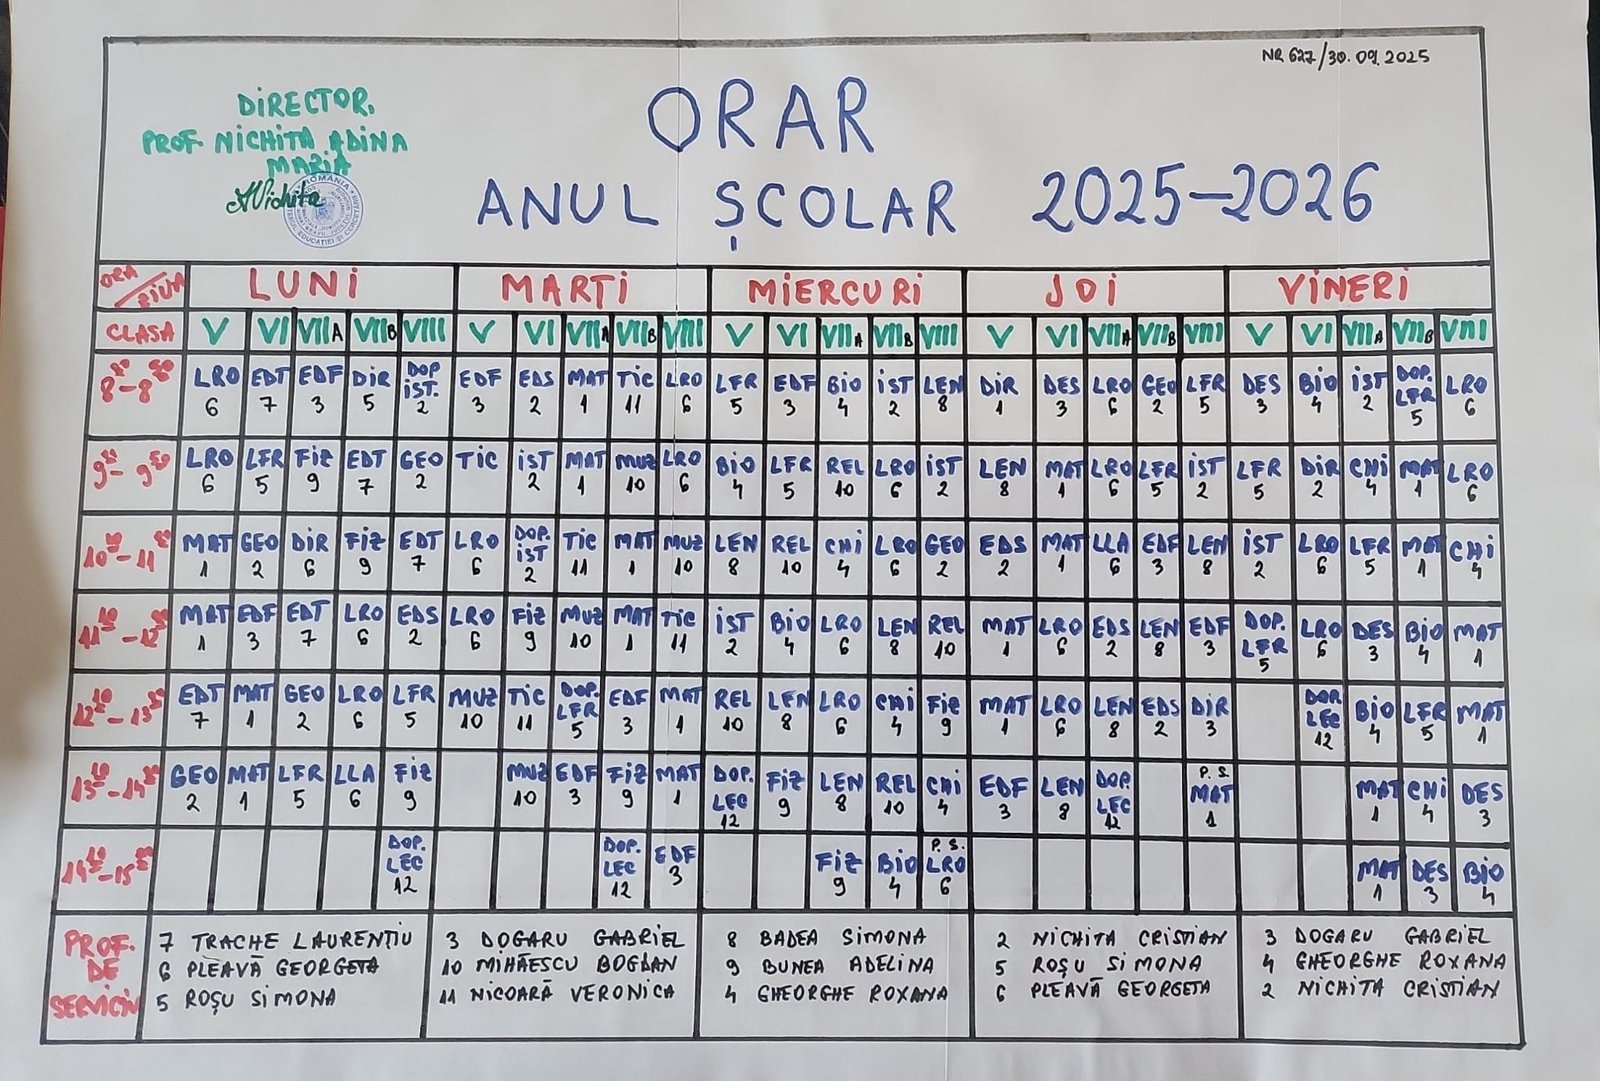 NR 627/30.09.2025
DIRECTOR,
PROF. NICHITA ADINA
MARIA
Nichita
ORAR
ANUL ȘCOLAR 2025-2026
ORA/ZIUA LUNI MARȚI MIERCURI JOI VINERI
CLASA V VI VII A VII B VIII V VI VII A VII B VIII V VI VII A VII B VIII V VI VII A VII B VIII V VI VII A VII B VIII
8⁰⁰-8⁵⁰ LRO 6 EDT 7 EDF 3 DIR 5 DOP IST. 2 EDF 3 EDS 2 MAT 1 TIC 11 LRO 6 LFR 5 EDF 3 BIO 4 IST 2 LEN 8 DIR 1 DES 3 LRO 6 GEO 2 LFR 5 DES 3 BIO 4 IST 2 DOP. LFR 5 LRO 6
9⁰⁰-9⁵⁰ LRO 6 LFR 5 FIZ 9 EDT 7 GEO 2 TIC IST 2 MAT 1 MUZ 10 LRO 6 BIO 4 LFR 5 REL 10 LRO 6 IST 2 LEN 8 MAT 1 LRO 6 LFR 5 IST 2 LFR 5 DIR 2 CHI 4 MAT 1 LRO 6
10⁰⁰-11⁰⁰ MAT 1 GEO 2 DIR 6 FIZ 9 EDT 7 LRO 6 DOP. IST 2 TIC 11 MAT 1 MUZ 10 LEN 8 REL 10 CHI 4 LRO 6 GEO 2 EDS 2 MAT 1 LLA 6 EDF 3 LEN 8 IST 2 LRO 6 LFR 5 MAT 1 CHI 4
11¹⁰-12⁰⁰ MAT 1 EDF 3 EDT 7 LRO 6 EDS 2 LRO 6 FIZ 9 MUZ 10 MAT 1 TIC 11 IST 2 BIO 4 LRO 6 LEN 8 REL 10 MAT 1 LRO 6 EDS 2 LEN 8 EDF 3 DOP. LFR 5 LRO 6 DES 3 BIO 4 MAT 1
12¹⁰-13⁰⁰ EDT 7 MAT 1 GEO 2 LRO 6 LFR 5 MUZ 10 TIC 11 DOP. LFR 5 EDF 3 MAT 1 REL 10 LEN 8 LRO 6 CHI 4 FIZ 9 MAT 1 LRO 6 LEN 8 EDS 2 DIR 3 DOP. LEC 12 BIO 4 LFR 5 MAT 1
13¹⁰-14⁰⁰ GEO 2 MAT 1 LFR 5 LLA 6 FIZ 9 MUZ 10 EDF 3 FIZ 9 MAT 1 DOP. LEC 12 FIZ 9 LEN 8 REL 10 CHI 4 EDF 3 LEN 8 DOP. LEC 12 P. S. MAT 1 MAT 1 CHI 4 DES 3
14¹⁰-15⁰⁰ DOP. LEC 12 DOP. LEC 12 EDF 3 FIZ 9 BIO 4 P. S. LRO 6 MAT 1 DES 3 BIO 4
PROF. DE SERVICIU
7 TRACHE LAURENȚIU
6 PLEAVĂ GEORGETA
5 ROȘU SIMONA
3 DOGARU GABRIEL
10 MIHĂESCU BOGDAN
11 NICOARĂ VERONICA
8 BADEA SIMONA
9 BUNEA ADELINA
4 GHEORGHE ROXANA
2 NICHITA CRISTIAN
5 ROȘU SIMONA
6 PLEAVĂ GEORGETA
3 DOGARU GABRIEL
4 GHEORGHE ROXANA
2 NICHITA CRISTIAN